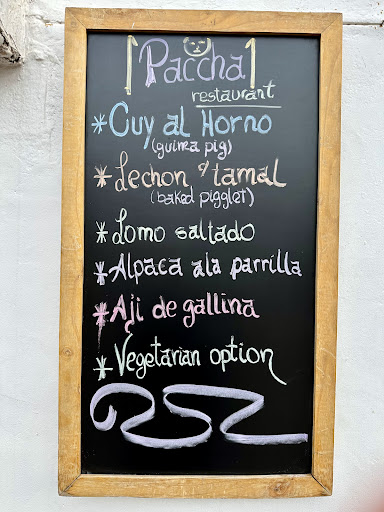 Paccha
restaurant
*Cuy al Horno
(guinea pig)
*Lechon y tamal
(baked pigglet)
*Lomo saltado
*Alpaca ala parrilla
*Aji de gallina
*Vegetarian option